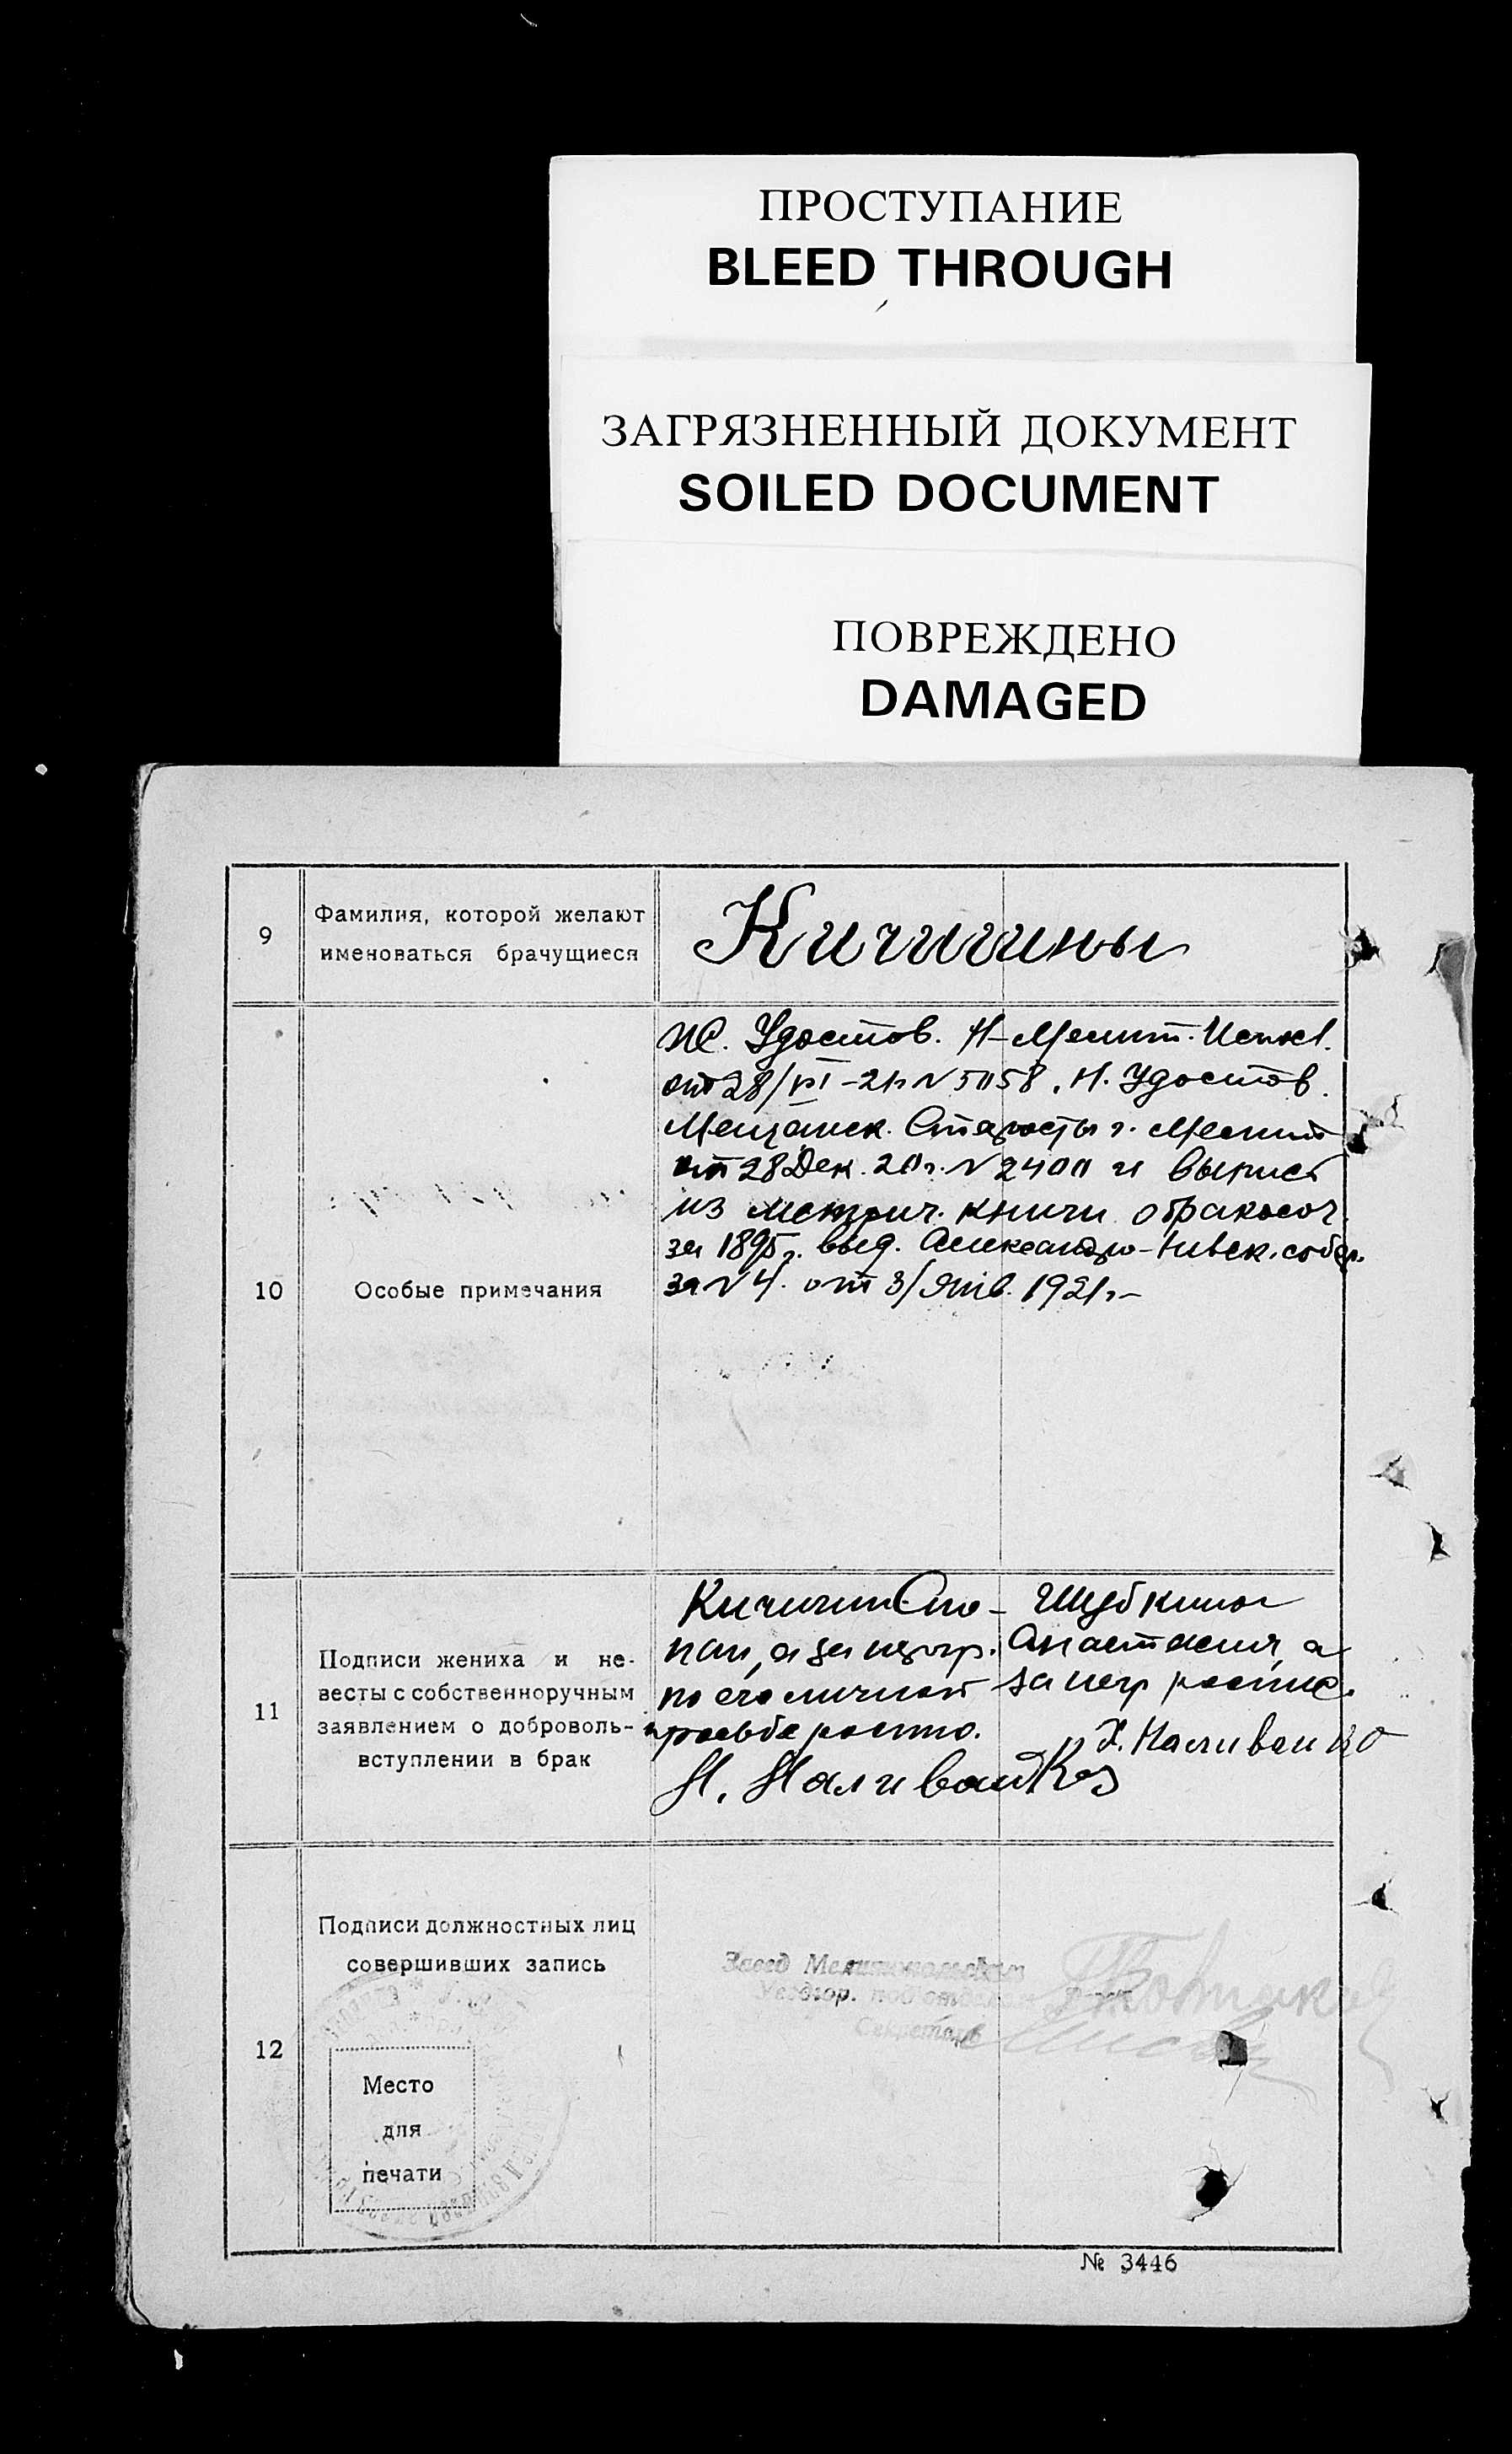 ПРОСТУПАНИЕ
BLEED THROUGH
ЗАГРЯЗНЕННЫЙ ДОКУМЕНТ
SOILED DOCUMENT
ПОВРЕЖДЕНО
DAMAGED
9
Фамилия, которой желают
именоваться брачущиеся
Кичигины
10
Особые примечания
Ж. Удостов. Н-Мелит. Исполк.
от 28/VI-21г N 5058. Н. Удостов.
Мещанск. Старосты г. Мелит
от 28 Дек. 20г. N 2400 и выпись
из метрич. книги о бракосоч.
за 1895г. выд. Александро-Невск. собор.
за N 4. от 3/Янв. 1921г.-
11
Подписи жениха и не-
весты с собственноручным
заявлением о доброволь-
вступлении в брак
Кичигин Сте-
пан, а за негр.
по его личной
просьбе
Н. Наливайко
Щубкина
Анастасия, а
за негр роспис.
Х. Наливайко
12
Подписи должностных лиц
совершивших запись
Место
для
печати
Завед Мелитопольским
Уездгор. подотделом
Секретарь
№ 3446